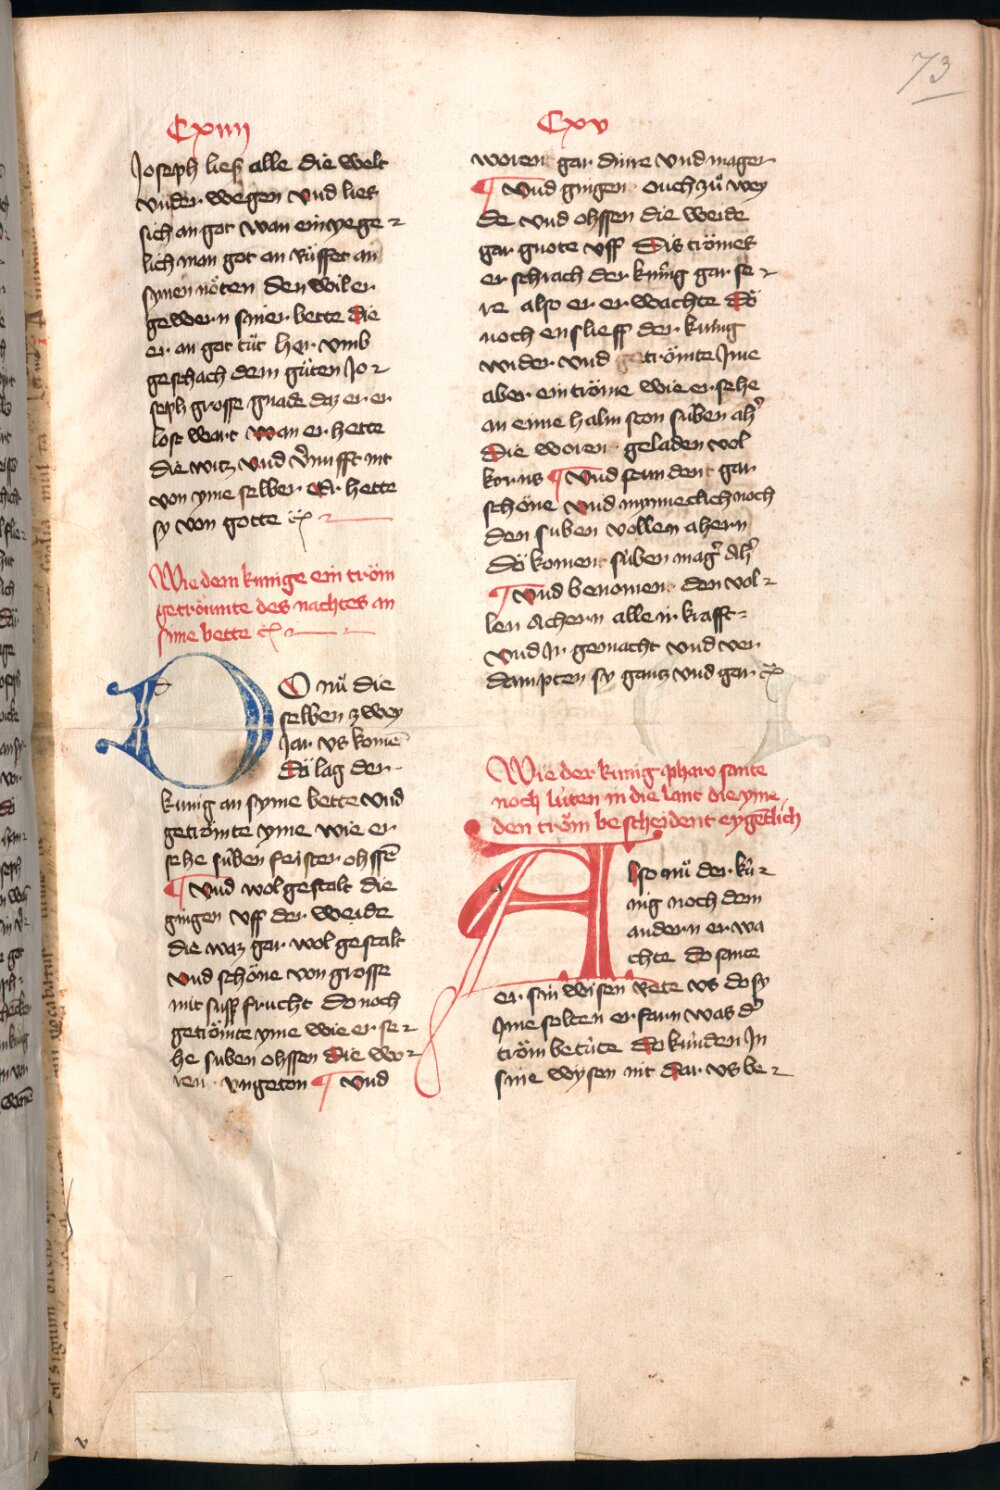 73
Cxiiij
Joseph liesz alle die welt
vnder wegen vnd lies
sich an got wan ein yege
lich man got an rüffet an
synen nöten den wil er
gewern siner bette die
er an got tüt her vmb
geschach dem güten Jo
seph grosse gnade daz er er
lost wart wan er hette
die witz vnd v̓nufft nit
von yme selber Er hette
sy von gotte
Wie dem kunige ein tröm
getrömte des nachtes an
sime bette
DO nů die
selben zwey
Jar vs komē
Dö lag der
kunig an syme bette vnd
getrömte yme wie er
sehe süben feisten ohssē
¶ Vnd wol gestalt die
gingen vff der weide
die waz gar wol gestalt
vnd schöne von grosse
mit sussz frucht do noch
getrömte yme wie er se
he suben ohssen die wo
ren vngeton ¶ Vnd
Cxv
woren gar dürre vnd mager
¶ Vnd gingen ouch zů wey
de vnd ohssen die weide
gar gnote vff Dis trömes
er schrach der kunig gar se
re also er er wachte dö
noch enslieff der kunig
wider vnd getrömte Jme
aber ein tröme wie er sehe
an eime halm ston suben ah̓
Die woren geladen vol
korns ¶ Vnd stunden gar
schöne vnd mynneclich noch
den suben vollen ahern
Dö komen suben mag̓ Ah̓
¶ Vnd benomen den vol
len Achern alle ir krafft
Vnd Jr gemacht vnd ver
dampten sy gantz vnd gar
Wie der kunig pharo sante
noch lüten in die lant die yme
den tröm bescheident eygētlich
Also nů der kü
nig noch dem
andern er wa
chte do sante
er sin wisen Rete vs do sy
Jme solten erfarn was d̓
tröm betüte do kunden In
sine wysen nit dar vs be